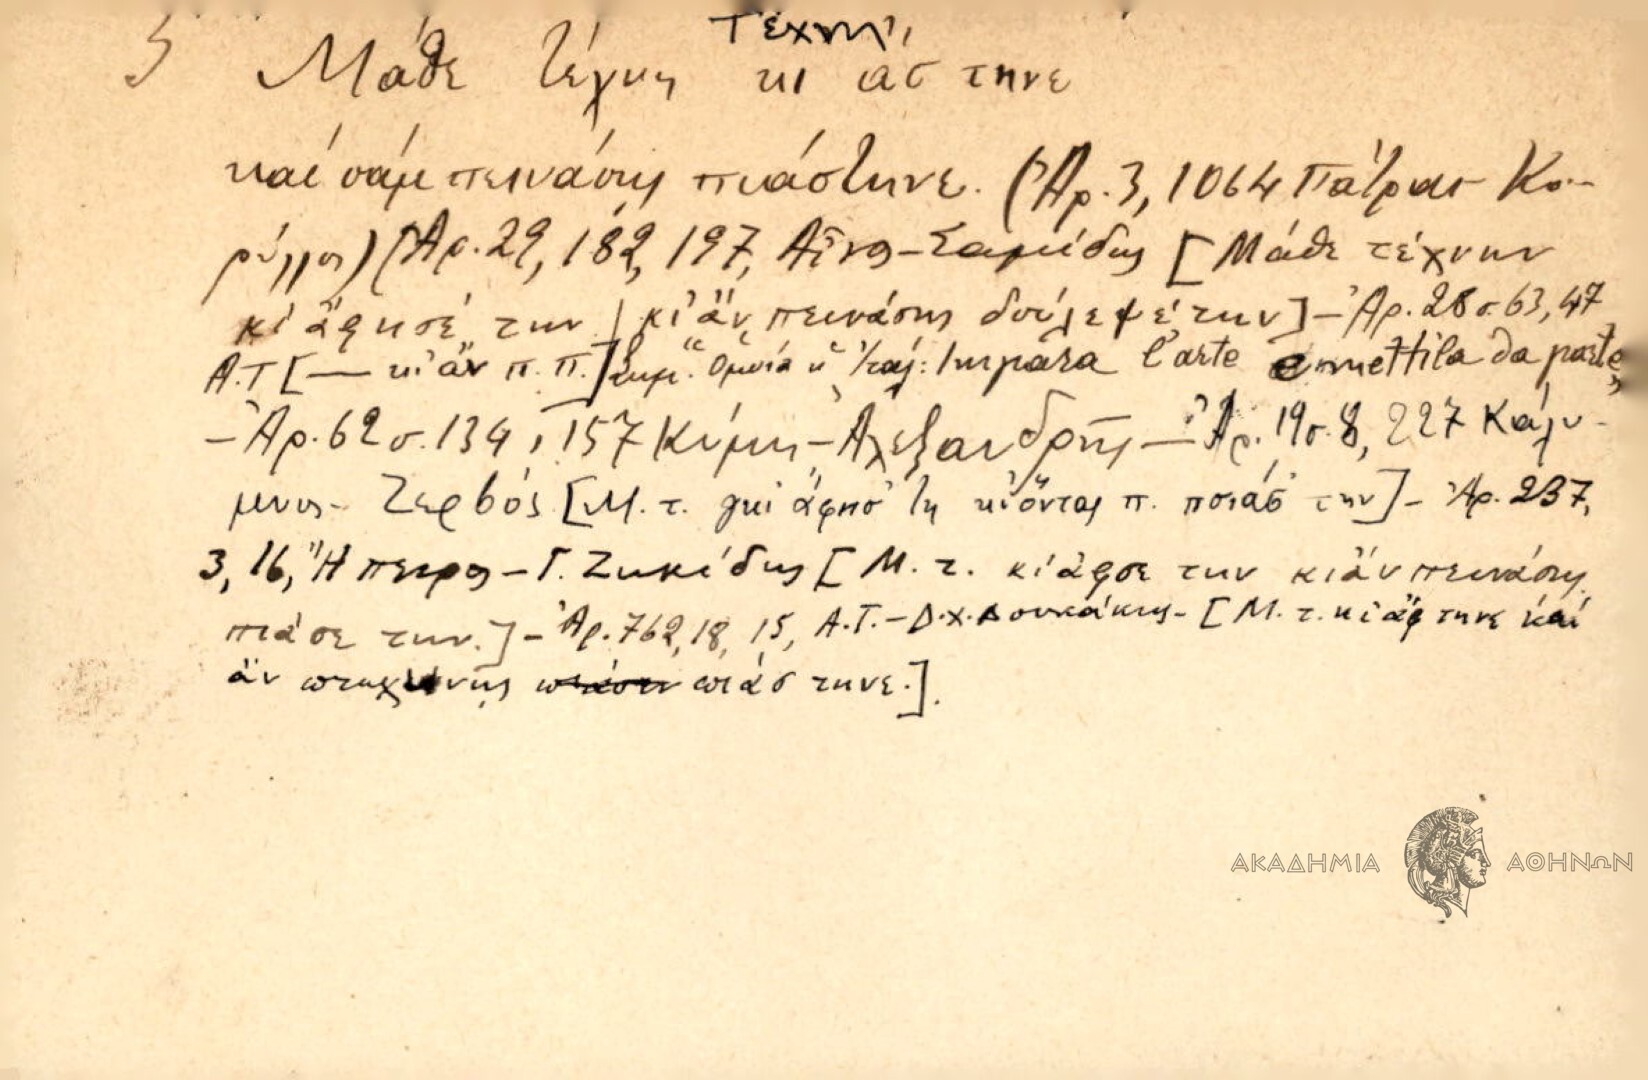 Τέχνη
5 Μάθε τέχνη κι ασ τηνε
καί σάμ πεινάσῃς πιάστηνε. (Ἀρ. 3, 1064 Πάτραι Κο-
ρύλλος) (Ἀρ. 29, 182, 197, Αἶνος – Σαμίδης [Μάθε τέχνην
κι ἄφησέ την | κι ἄν πεινάσῃς δούλεψέ την] – Ἀρ. 28 σ. 63, 47
Α.Τ [— κι ἄν π. π.] Σημ. Ὁμοία ἡ Ἰταλ: Impara l'arte e mettila da parte
– Ἀρ. 62 σ. 134, 157 Κύμη – Ἀλεξανδρῆς – Ἀρ. 19 σ. 8, 227 Κάλυ-
μνος – Ζερβός [Μ. τ. κι άφησ' τη κι ὄντας π. πιάσ' την] – Ἀρ. 237,
3, 16, Ἤπειρος – Γ. Ζηκίδης [Μ. τ. κι άφσε την κι ἄν πεινάσῃς
πιάσε την.] – Ἀρ. 762, 18, 15, Α.Τ. – Δ.Χ. Δουκάκης – [Μ. τ. κι ἄφ τηνε καί
ἄν πτωχύνῃς πιάσ τηνε.].
ΑΚΑΔΗΜΙΑ ΑΘΗΝΩΝ